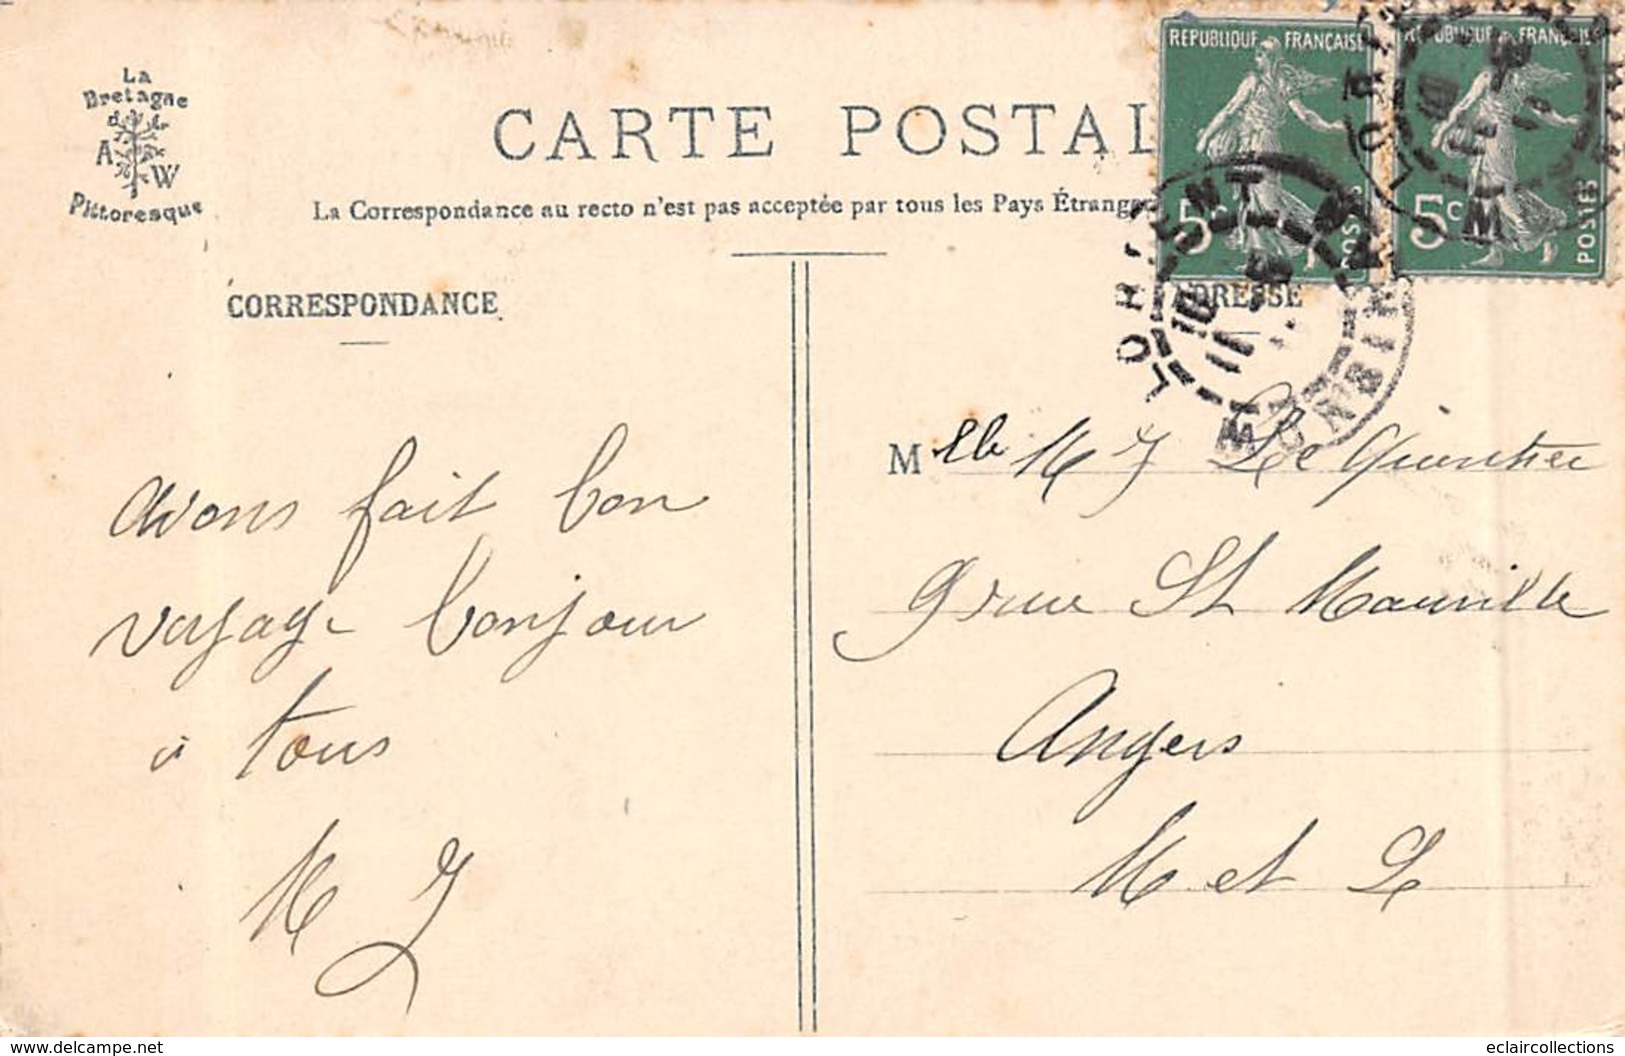 La
Bretagne
A W
Pittoresque
CARTE POSTAL
La Correspondance au recto n'est pas acceptée par tous les Pays Étrange
REPUBLIQUE FRANÇAISE
5c
POSTES
REPUBLIQUE FRANÇAISE
5c
POSTES
LORIENT
MORBIHAN
CORRESPONDANCE
ADRESSE
avons fait bon
voyage bonjour
à tous
M J
Mlle M J Le Quintrec
9 rue St Maurille
Angers
M et L
www.delcampe.net
eclaircollections